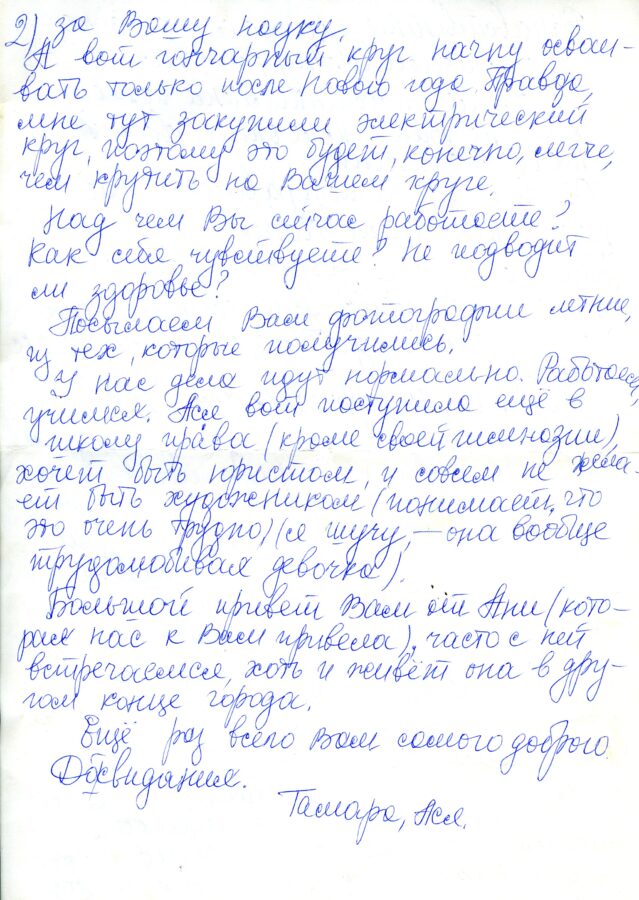 2) за Вашу науку.
А вот гончарный круг начну осваи-
вать только после Нового года. Правда,
мне тут закупили электрический
круг, поэтому это будет, конечно, легче,
чем крутить на Вашем круге.
Над чем Вы сейчас работаете?
Как себя чувствуете? Не подводит
ли здоровье?
Посылаем Вам фотографии летние,
из тех, которые получились.
У нас дела идут нормально. Работаем,
учимся. Ася вот поступила ещё в
школу права (кроме своей гимназии),
хочет быть юристом, и совсем не жела-
ет быть художником (понимает, что
это очень трудно) (я шучу, – она вообще
трудолюбивая девочка).
Большой привет Вам от Ани (кото-
рая нас к Вам привела), часто с ней
встречаемся, хоть и живёт она в дру-
гом конце города.
Ещё раз всего Вам самого доброго.
Досвидания.
Тамара, Ася.